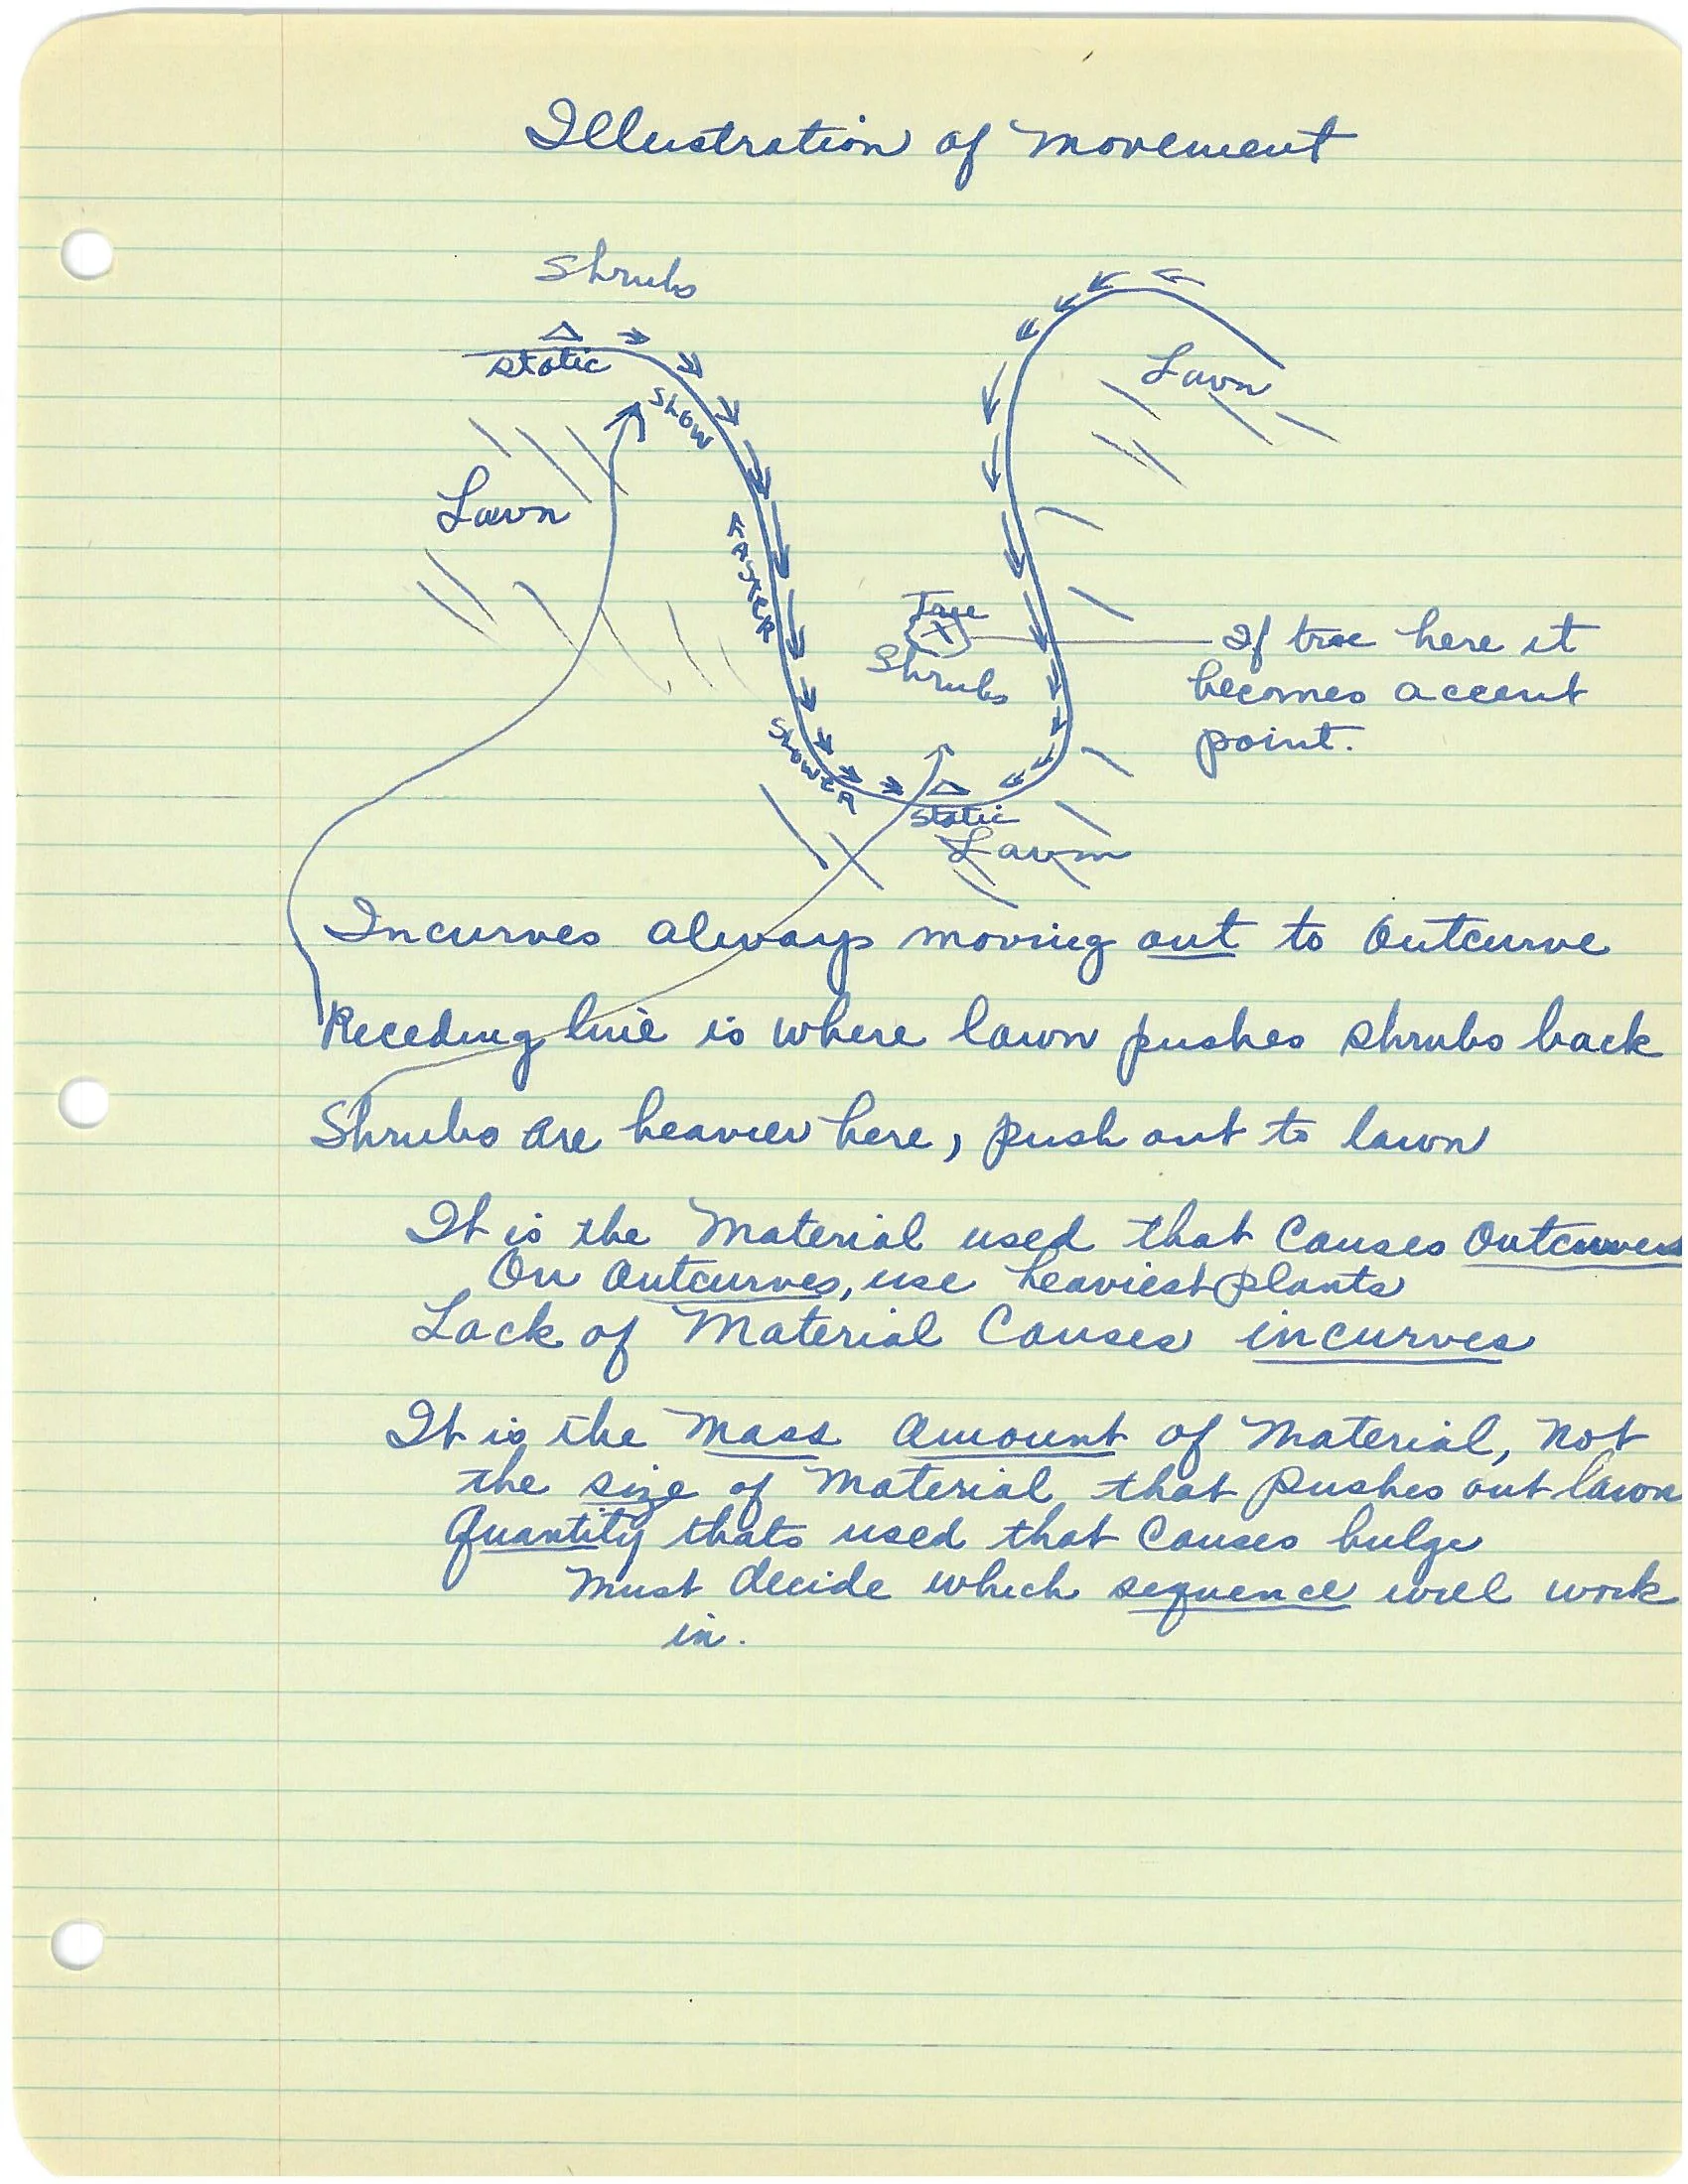 Illustration of Movement
Shrubs
Static
Slow
Lawn
Lawn
Faster
Tree
Shrubs
If tree here it
becomes accent
point.
Slower
Static
Lawn
Incurves always moving out to Outcurve
Receding line is where lawn pushes shrubs back
Shrubs are heavier here, push out to lawn
It is the Material used that Causes Outcurves
On Outcurves, use heaviest plants
Lack of Material Causes incurves
It is the Mass Amount of Material, Not
the size of Material that pushes out lawn
Quantity thats used that Causes bulge
Must decide which sequence will work
in.